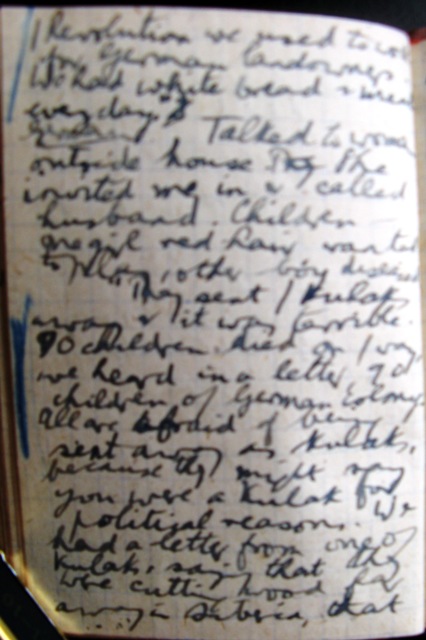 Revolution we used to
for German landowners.
We had white bread & meat
every day."
Talked to woman
outside house. She
invited me in & called
husband. Children
one girl red hair wanted
to play, other boy diseased
"They sent / Kulaks
away & it was terrible.
90 children died on / way,
we heard in a letter,
children of German colony.
All are afraid of being
sent away as Kulaks,
because they might say
you were a Kulak for
political reasons. We
had a letter from one of
Kulaks, saying that they
were cutting wood far
away in Siberia, that